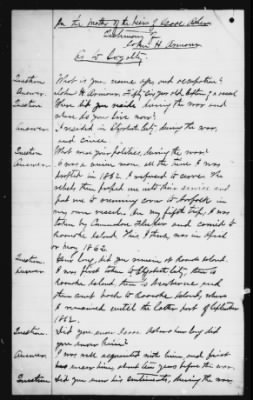 In the matter of the heirs of Isaac
Testimony of
John H
as to Loyalty.
Question What is your name age and occupation?
Answer. John H fifty six years old, a vessel
Question Where did you reside during the war and
where do you live now?
Answer. I resided in Elizabeth City during the war,
and since.
Question What were your politics, during the war?
Answer I was a union man all the time I was
in 1862. I refused to serve. The
rebels then forced me into their service and
put me to running corn to Norfolk in
my own vessel. On my fifth trip, I was
taken by Commodore and carried to
Roanoke Island. This I think was in April
or May 1862.
Question. How long did you remain at Roanoke Island.
Answer I was first taken to Elizabeth City, then to
Roanoke Island then to Newberne and
then sent back to Roanoke Island, where
I remained until the latter part of September
1862.
Question. Did you know Isaac how long did
you know him?
Answer I was well acquainted with him, and first
knew him, about ten years before the war.
Question Did you know his sentiments, during the war